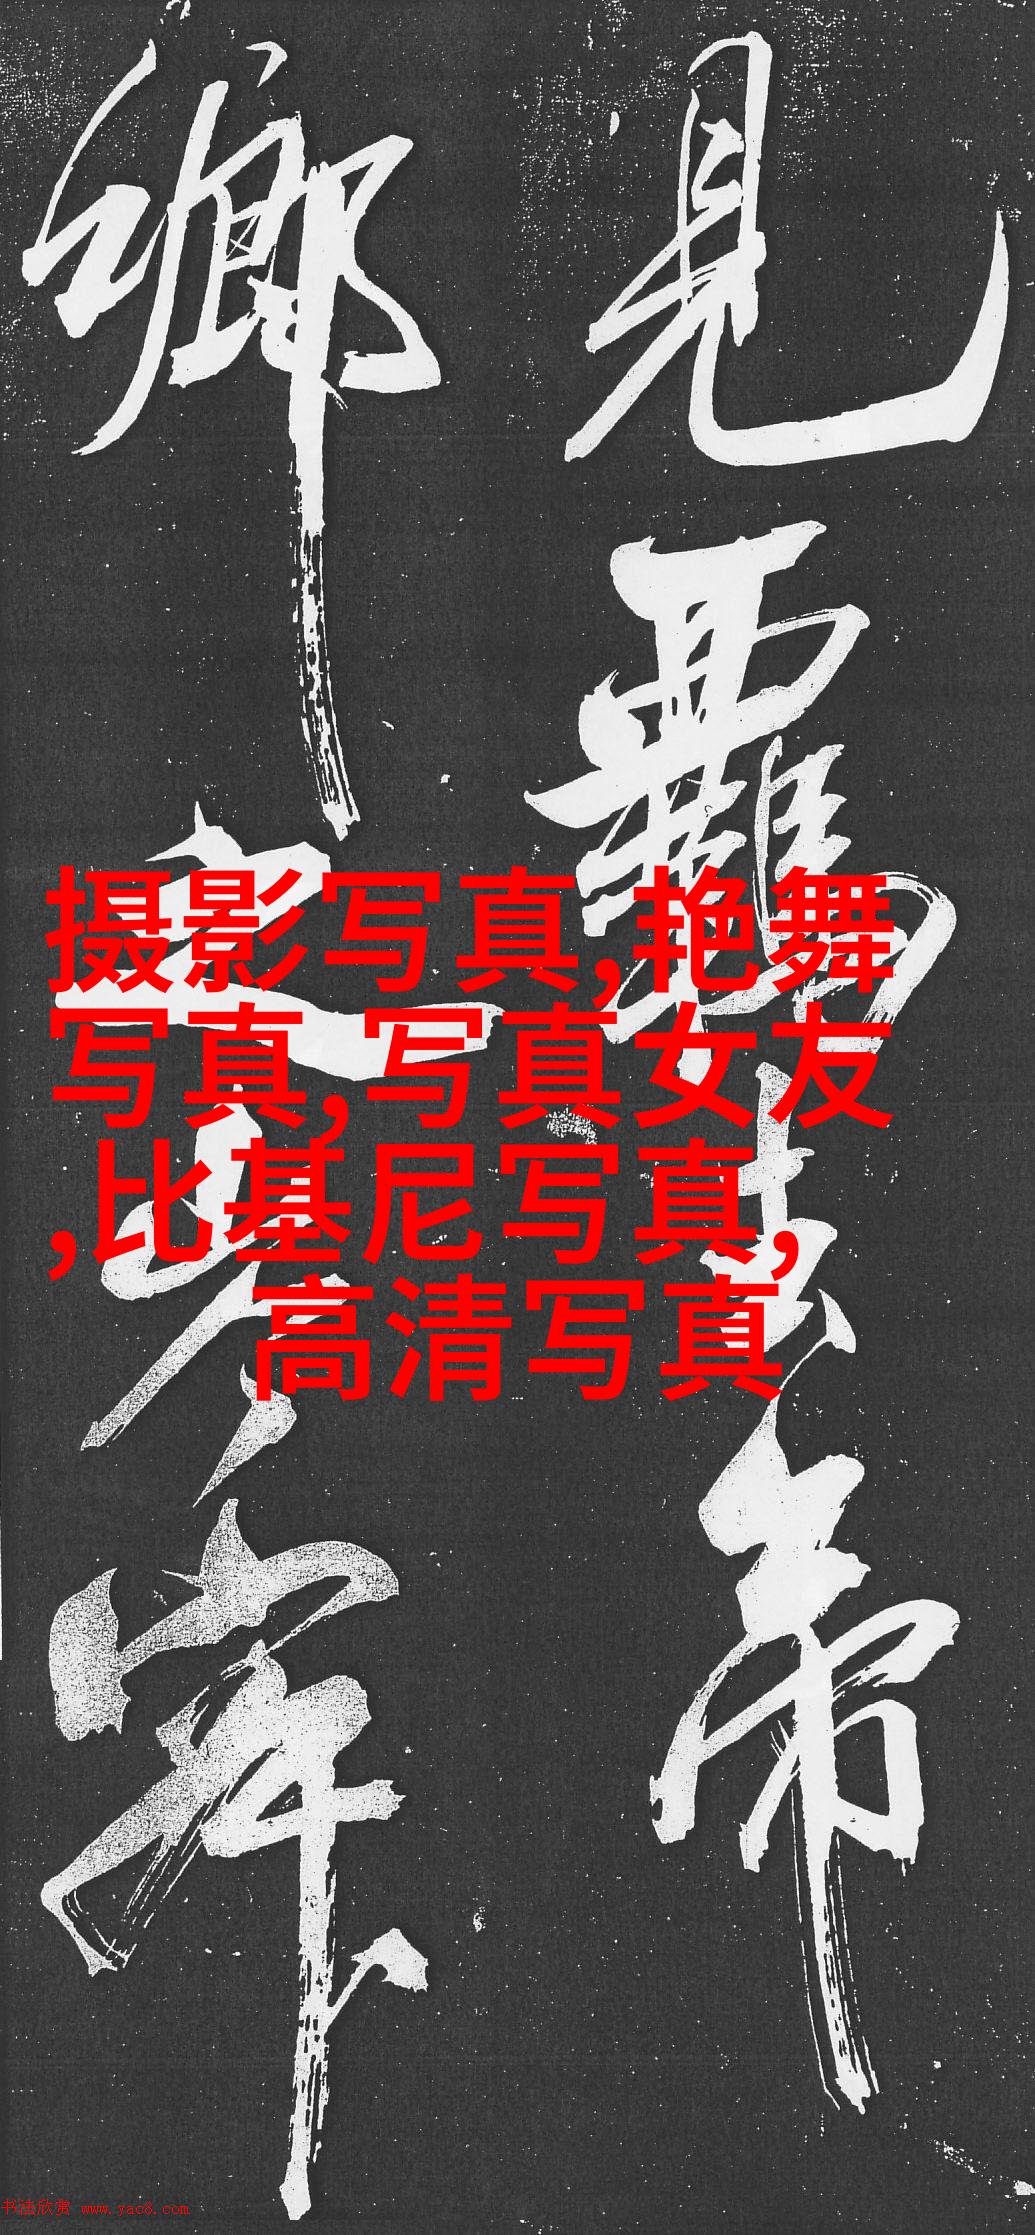 見羈去帝
鄉之岑寂
摄影写真,艳舞
写真,写真女友
,比基尼写真,
高清写真
书法欣赏 www.yac8.com